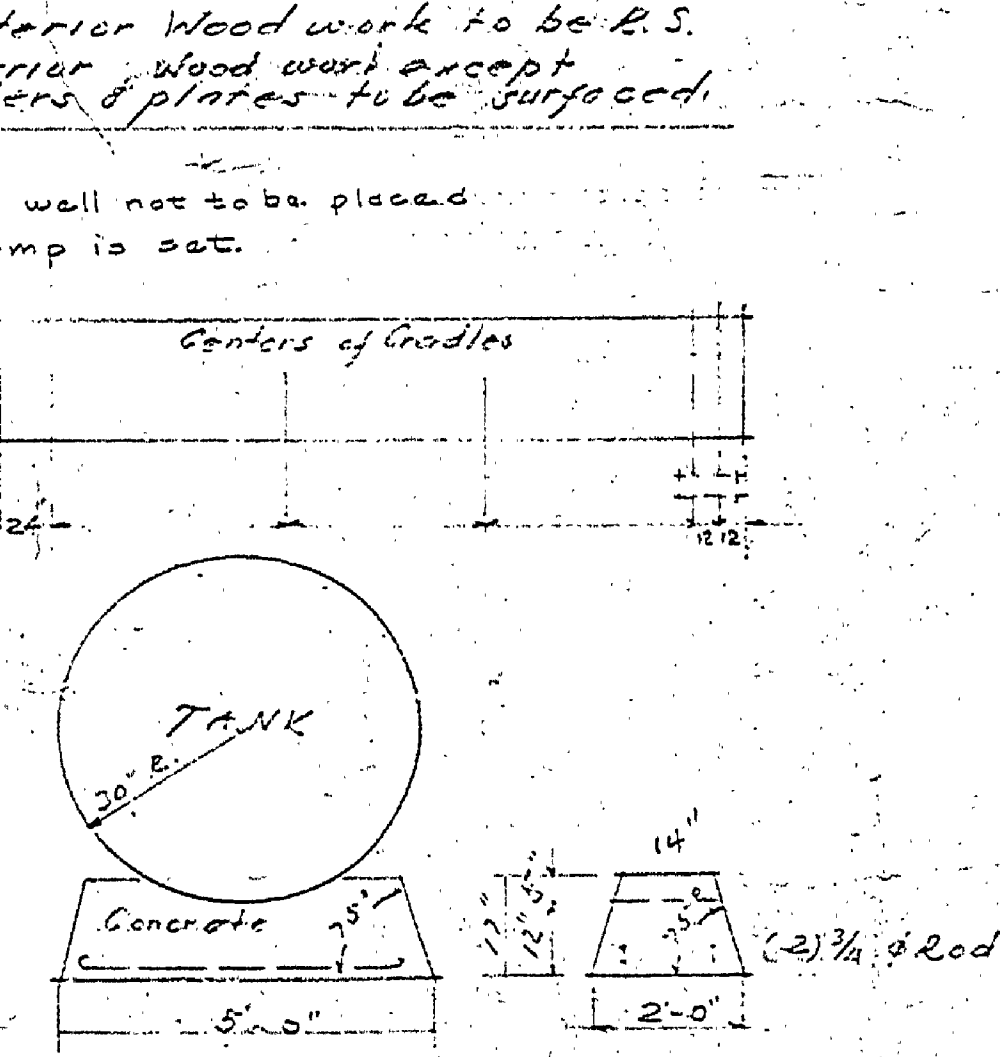 terior Wood work to be R.S.
rior Wood work except
ers & plates to be surfaced.
well not to be placed
mp is set.
Centers of Cradles
24"
12 12
TANK
30" R.
14"
Concrete
75°
17"
12"
5"
75°
(2) 3/4 φ Rod
5'-0"
2'-0"